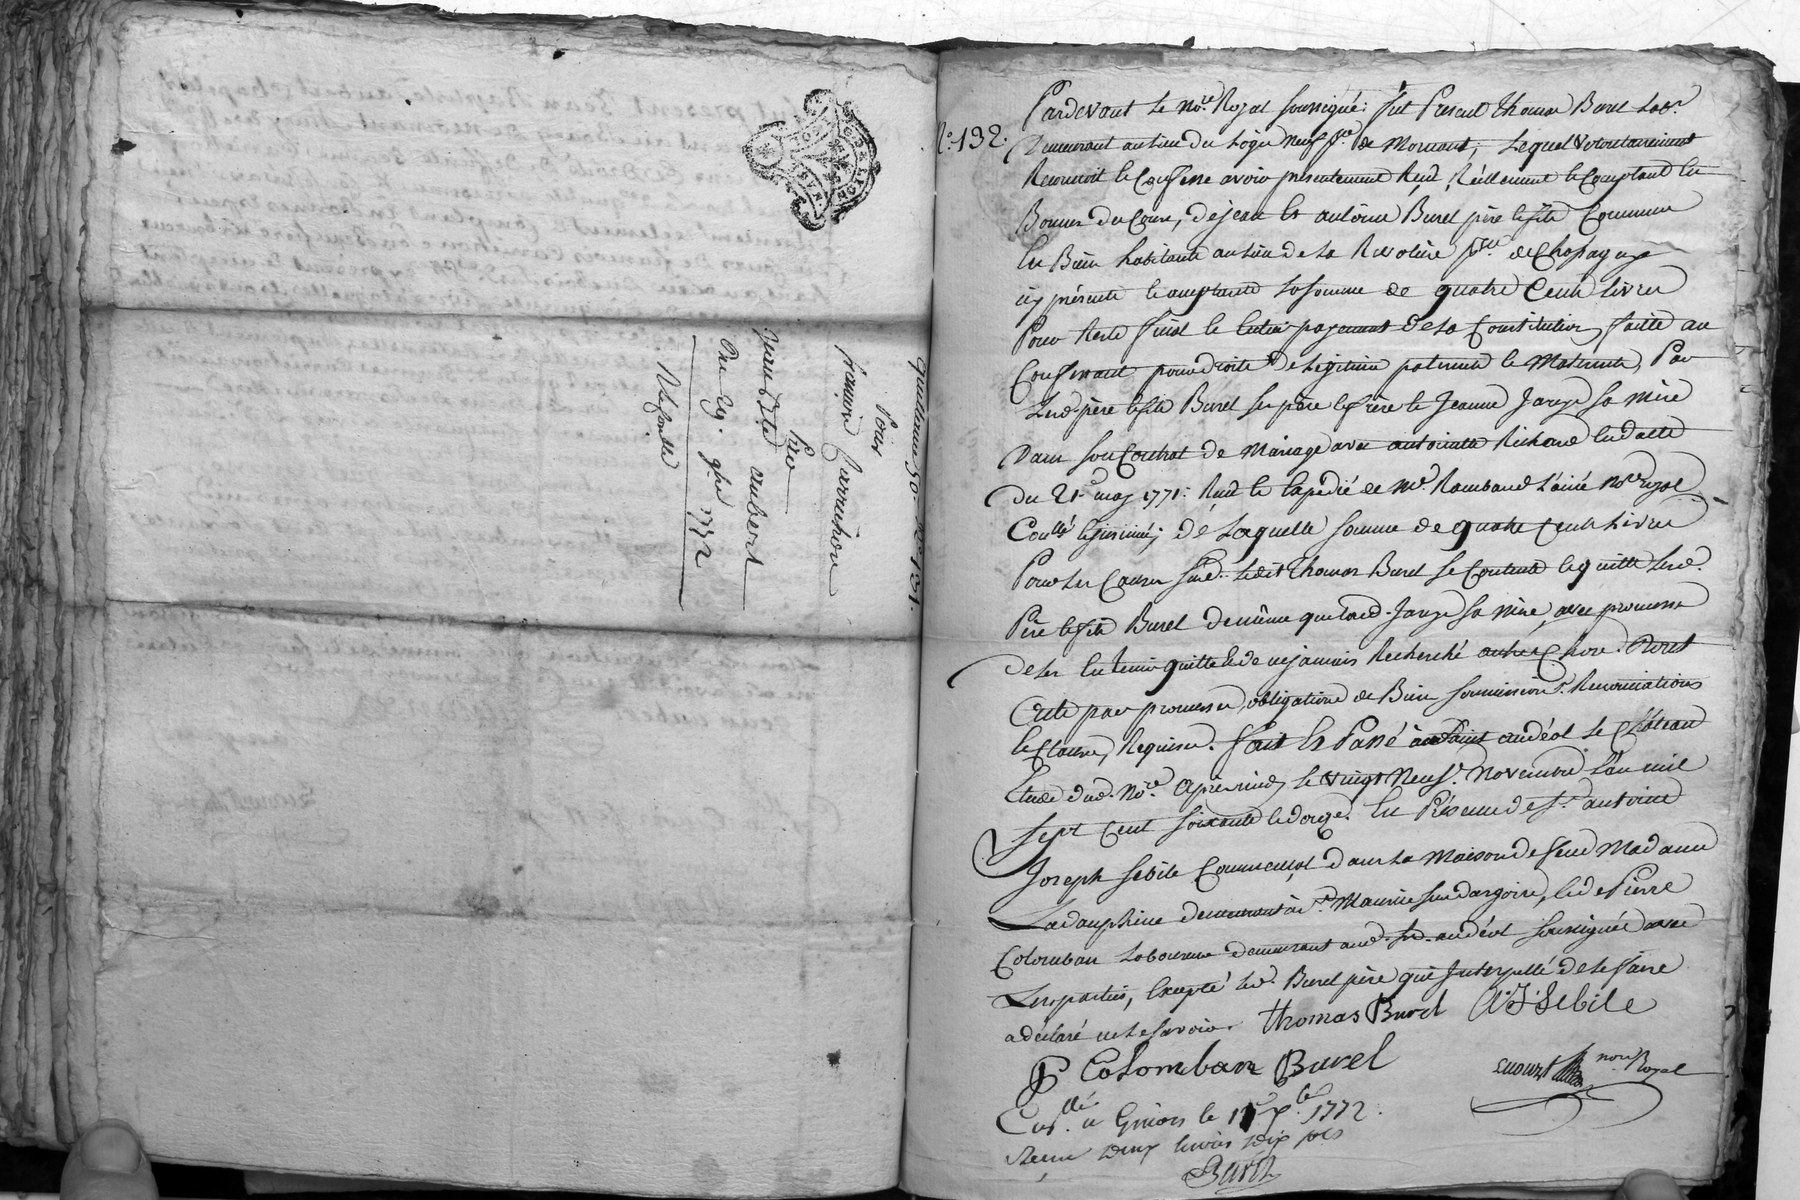 Quittance N.° 131.
Pour
françois
Jean Bte aubert
Du 29. 9bre 1772
N.° 132.
Pardevant Le No.re Royal soussigné: fut Present Thomas Burel Lab.r
Demeurant au Lieu du Loge Neuf p.sse de Mornant; Lequel volontairement
Reconnoit & Confesse avoir presentement Reçû, Réellement & Comptant En
Bonnes Du Cours, de Jean & antoine Burel père & fils Communs
En Biens habitants au Lieu de La Rivoliere p.sse de Chassagny
icy présents & acceptants La somme de quatre Cents Livres
Pour Reste final & Entier payement de La Constitution faitte au
Confessant pour droits de Légitime paternels & Maternels, Par
Lesd. père & fils Burel ses père & frère & Jeanne Jarge sa Mère
Dans son Contrat de Mariage avec antoinette Richard En datte
du 21.e may 1771: Reçû & Expédié de M.e Rambaud L'ainé No.re royal
Con.llé & insinué; De Laquelle somme de quatre Cents Livres
Pour Les Causes susd. Ledit Thomas Burel se Contente & quitte Lesd.
Père & fils Burel de même que Lad. Jarge sa Mère, avec promesse
de Les En tenir quittes & de ne jamais Rechercher
par promesses, obligations de Biens soumissions Renonciations
& Clauses, Requises. fait & Passé à Saint andéol Le Château
Etude dud. No.re Après midy Le vingt Neuf.e Novembre L'an mil
Sept Cent soixante & douze. En Présence de S.r antoine
Joseph Sebile Commensal dans La Maison de feüe Madame
Ladauphine demeurant à S.t Maurice sur dargoire, & de Pierre
Colomban Laboureur demeurant aud. St. andéol soussignés avec
Les parties, Excepté Led. Burel père qui Interpellé de Le faire
a déclaré ne Le savoir. Thomas Burel A.J. Sebile
P Colomban Burel
nore Royal
Con.llé a Givors le 1er Xbre 1772.
Reçu deux livres dix sols